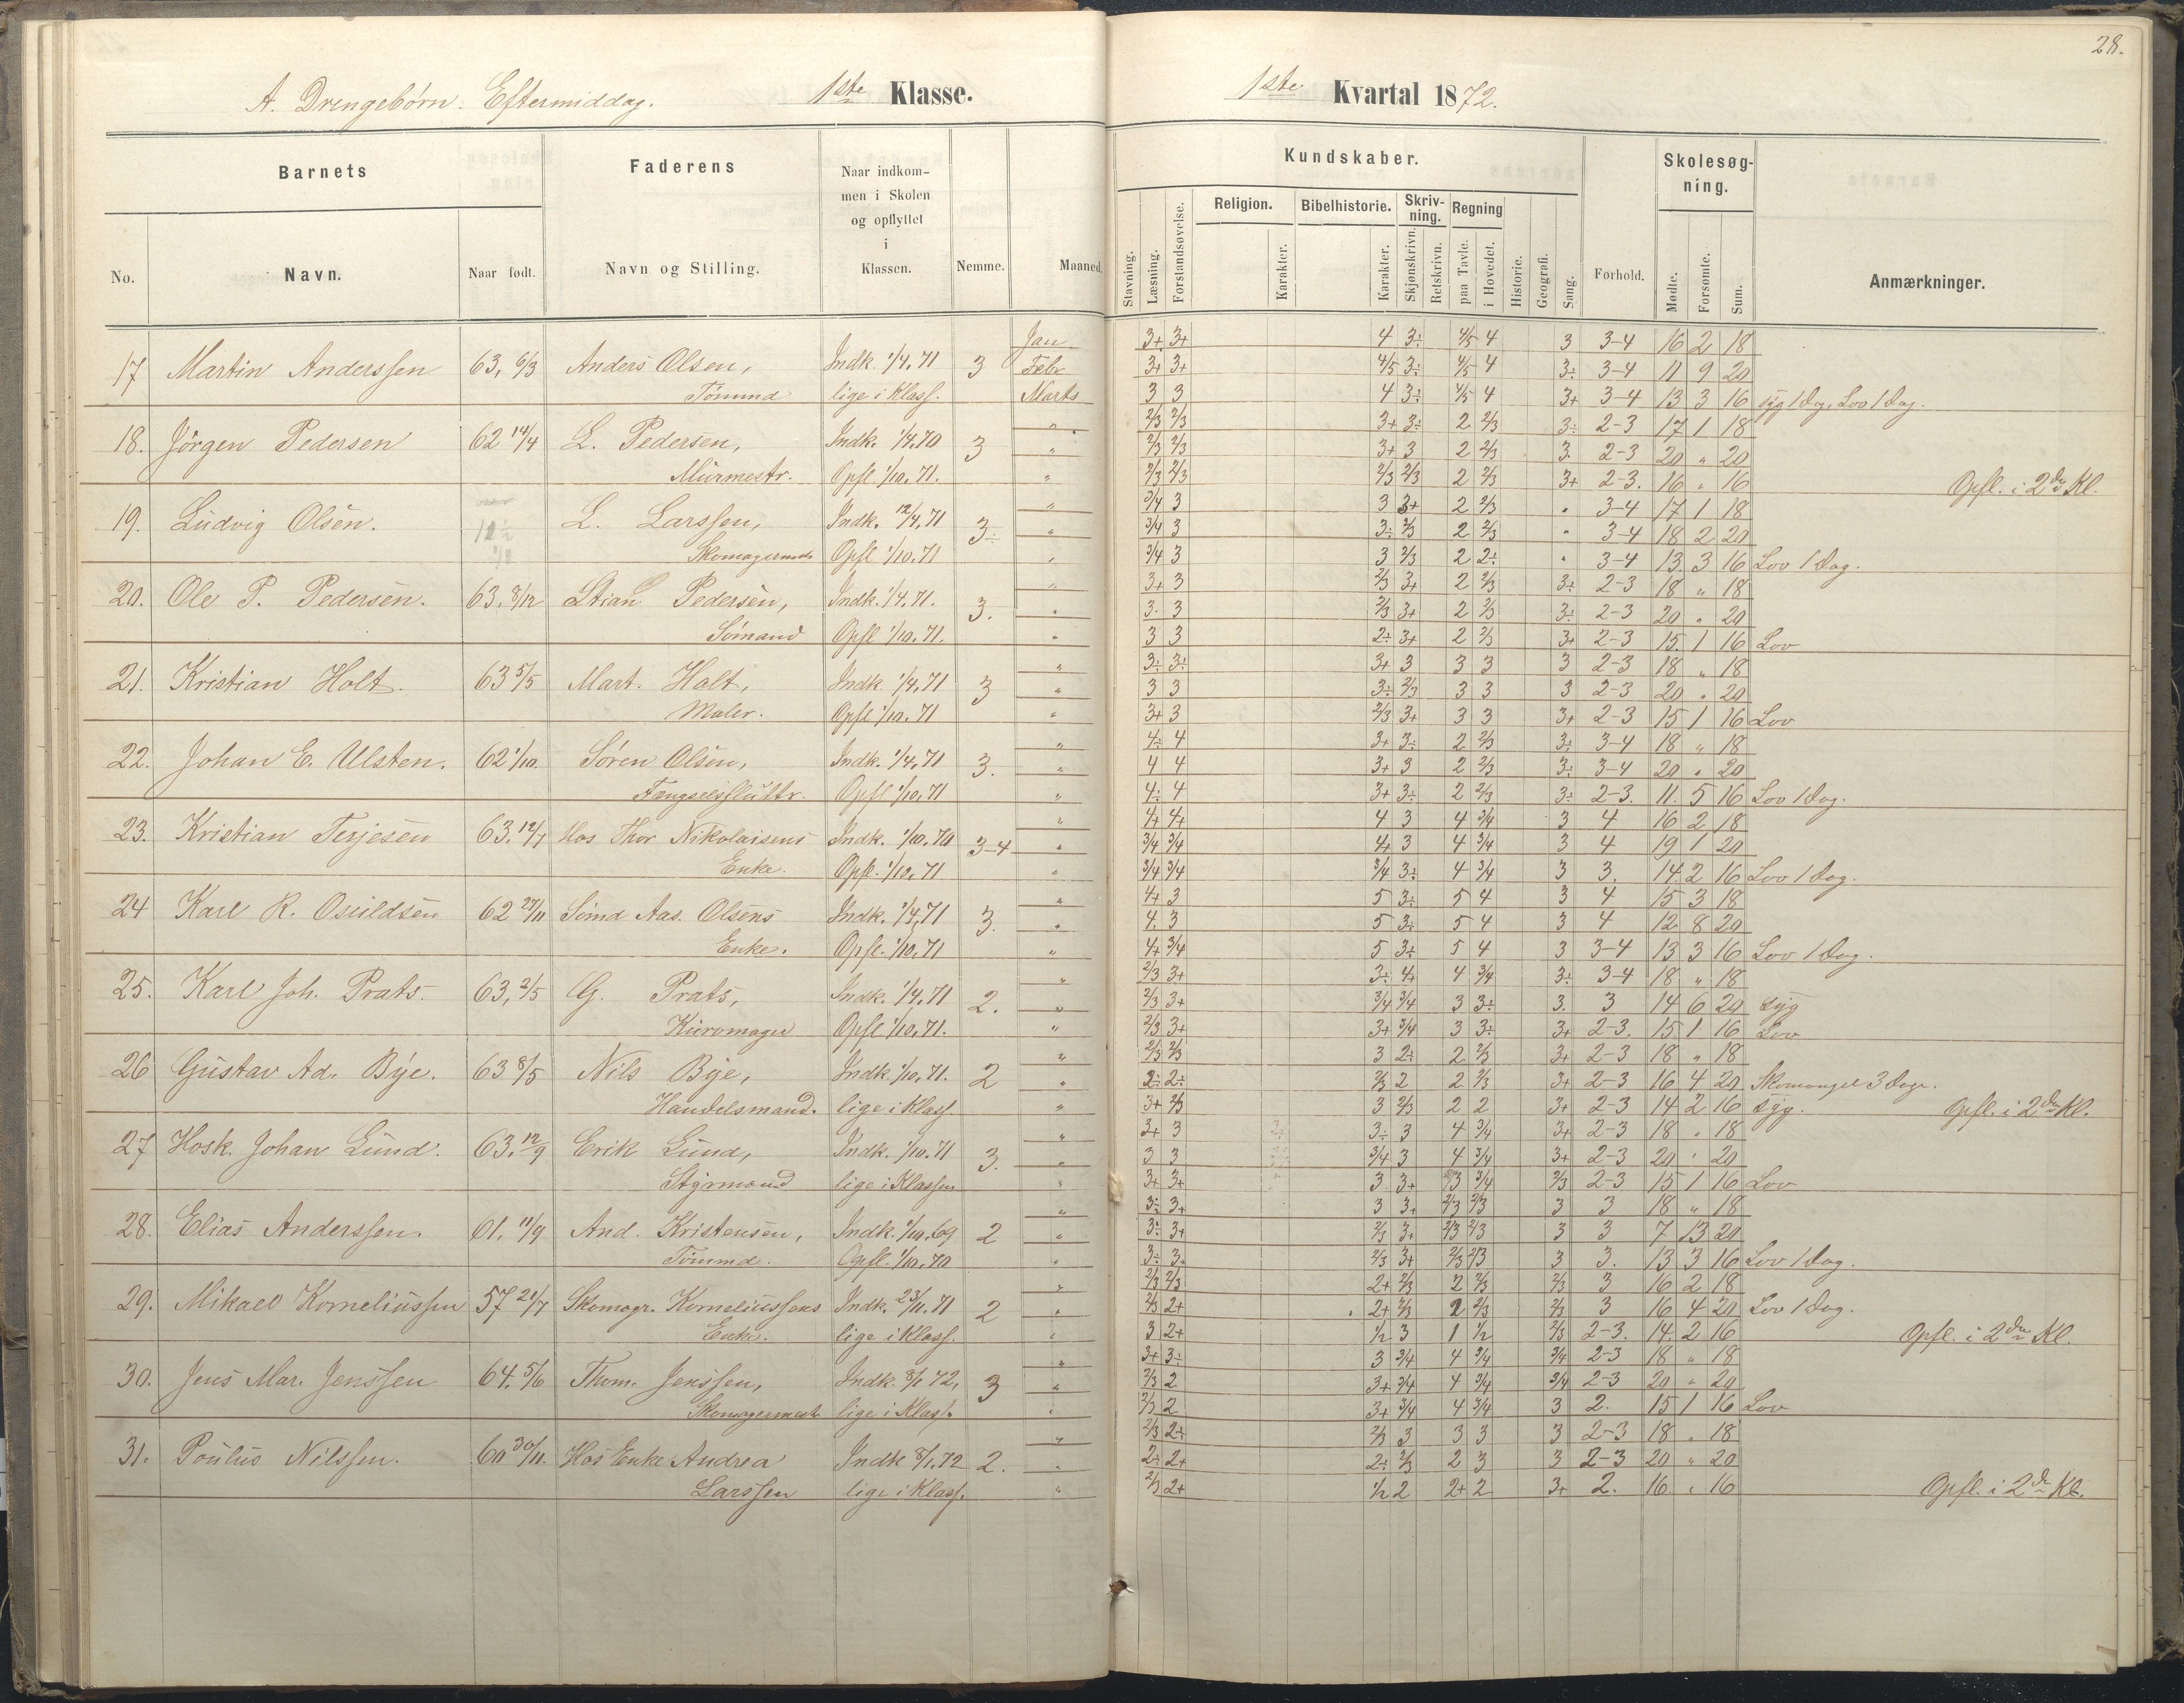 28.
A. Drengebørn. Eftermiddag. 1ste Klasse. 1ste Kvartal 1872.
Barnets Faderens Naar indkommen i Skolen og opflyttet i Klassen. Nemme. Maaned. Kundskaber. Forhold. Skolesøgning. Anmærkninger.
No. Navn. Naar født. Navn og Stilling.
Stavning. Læsning. Forstandsøvelse. Religion. Karakter. Bibelhistorie. Karakter. Skrivning. Skjønskrivn. Retskrivn. Regning paa Tavle. i Hovedet. Historie. Geografi. Sang. Mødte. Forsømte. Sum.
17 Martin Anderssen 63, 6/3 Anders Olsen, Indk. 1/4, 71 3 Jan 3+ 3+ 4 3÷ 4/5 4 3 3-4 16 2 18
Febr 3+ 3+ 4/5 3÷ 4/5 4 3÷ 3-4 11 9 20
Tømmd lige i Klass. Marts 3 3 4 3÷ 4/5 4 3+ 3-4 13 3 16 syg 1 Dag, Lov 1 Dag.
18. Jörgen Pedersen 62 14/4 L. Pedersen, Indk. 1/4, 70 3 " 2/3 2/3 3+ 3÷ 2 2/3 3÷ 2-3 17 1 18
" 2/3 2/3 3+ 3 2 2/3 3. 2-3 20 " 20
Murmestr. Opfl 1/10. 71. " 2/3 2/3 2/3 2/3 2 2/3 3+ 2-3. 16 " 16 Opfl. i 2den Kl.
19. Ludvig Olsen. L. Larssen, Indk. 12/4, 71 3÷ " 3/4 3 3 3+ 2 2/3 " 3-4 17 1 18
" 3/4 3 3÷ 2/3 2 2/3 " 3-4 18 2 20
Skomagermd Opfl 1/10. 71 " 3/4 3 3 2/3 2 2÷ " 3-4 13. 3 16 Lov 1 Dag.
20. Ole P. Pedersen. 63, 8/12 Stian Pedersen, Indk. 1/4, 71. 3. " 3+ 3 2/3 3+ 2 2/3 3÷ 2-3 18 " 18
" 3. 3 2/3 3+ 2 2/3 3÷ 2-3 20 " 20
Sømand Opfl 1/10. 71. " 3 3 2÷ 3+ 2 2/3 3+ 2-3 15. 1 16 Lov
21. Kristian Holt. 63 5/5 Mart. Holt, Indk. 1/4, 71 3 " 3÷ 3÷ 3+ 3 3 3 3 2-3 18 " 18
" 3 3 3÷ 2/3 3 3 3 2-3 20 " 20
Maler. Opfl 1/10. 71 " 3+ 3 2/3 3+ 3 3 3+ 2-3 15 1 16 Lov
22. Johan E. Ulsten. 62 1/10. Søren Olsen, Indk. 1/4, 71 3. " 4÷ 4 3+ 3÷ 2 2/3 3÷ 3-4 18 " 18
" 4 4 3+ 3 2 2/3 3÷ 3-4 20 " 20
Fængselsslüttr. Opfl 1/10, 71 " 4÷ 4 3+ 3÷ 2 2/3 3÷ 2-3. 11. 5 16 Lov 1 Dag.
23. Kristian Terjesen 63. 12/7 Hos Thor Nikolaisens Indk. 1/10. 70 3-4 " 4+ 4+ 4 3 4 3/4 3 4 16 2 18
" 3/4 3/4 4+ 3 4 3/4 3 4 19 1 20
Enke. Opfl. 1/10, 71 " 3/4 3/4 3/4 3÷ 4 3/4 3 3. 14. 2 16 Lov 1 Dag.
24 Karl R. Osuldsen 62 27/11 Sömd Aas. Olsens Indk. 1/4, 71 3. " 4+ 3 5 3÷ 5 4 3 4 15 3 18
" 4. 3 5 3÷ 5 4 3 4 12 8 20
Enke. Opfl. 1/10, 71 " 4+ 3/4 5 3÷ 5 4 3 3-4 13 3 16 Lov 1 Dag.
25. Karl Joh. Prats. 63, 2/5 G. Prats, Indk. 1/4, 71 2. " 2/3 3+ 3÷ 4+ 4 3/4 3÷ 3-4 18 " 18
" 2/3 3+ 3/4 3/4 3 3÷ 3. 3 14 6 20 syg
Kurvmager Opfl 1/10, 71. " 2/3 3+ 3+ 3/4 3 3÷ 3+ 2-3. 15 1 16 Lov
26 Gustav Ad. Bye. 63 8/5 Nils Bye, Indk. 1/10, 71. 2 " 2/3 2/3 3 2÷ 2 2/3 3+ 2-3 18 " 18
" 2÷ 2÷ 2/3 2 2 2/3 3+ 2-3 16 4 20 Skomangel 3 Dage.
Handelsmand. lige i Klass. " 3+ 2/3 3 2/3 2 2 3+ 2-3 14 2 16 syg. Opfl. i 2den Kl.
27 Hosk. Johan Lund. 63. 12/9 Erik Lund, Indk. 1/10. 71 3. " 3+ 3 3÷ 3 4 3/4 3+ 2-3 18 " 18
" 3 3 3/4 3 4 3/4 3+ 2-3 20 " 20
Styrmand lige i Klassen " 3+ 3+ 3 3+ 3/4 2/3 2-3 15 1 16 Lov
28. Elias Anderssen. 61. 11/9 And. Kristensen, Indk. 1/10. 69 2 " 3÷ 3+ 3 3+ 2/3 2/3 3 3 18 " 18
" 3÷ 3+ 2/3 3+ 2/3 2/3 3 3 7 13 20
Tømmd. Opfl. 1/10, 70 3÷ 3. 2/3 3+ 2/3 2/3 3 3. 13 3 16 Lov 1 Dag.
29. Mikael Korneliussen 57 21/7 Skomagr. Korneliussens Indk. 23/11. 71 2 " 2/3 2/3 2+ 2/3 2 2/3 2/3 3 16 2 18
" 2/3 2+ 2+ 2/3 2 2/3 2/3 3 16 4 20 Lov 1 Dag.
Enke. lige i Klass. " 3 2+ 1/2 3 1 1/2 2/3 2-3. 14. 2 16 Opfl. i 2den Kl.
30. Jens Mar. Jenssen 64. 5/6 Thom. Jenssen, Indk. 8/1 72, 3 " 3+ 3÷ 3 3/4 4 3/4 3/4 2-3 18 " 18
" 2/3 2 3+ 3/4 4 3/4 3/4 2-3 20 " 20
Skomagermest. lige i Klass. " 2/3 2 3+ 3/4 4 3/4 3 2. 15 1 16 Lov
31. Poulus Nilssen. 60 30/11. Hos Enke Andrea Indk 8/1, 72 2. " 2/3 2÷ 2/3 3 3 3 3 2-3 18 " 18
" 2÷ 2+ 2÷ 2/3 2 3 3 2-3 20 " 20
Larssen lige i Klass. " 2/3 2+ 1/2 2 2+ 2 3+ 2. 16 " 16 Opfl. i 2den Kl.